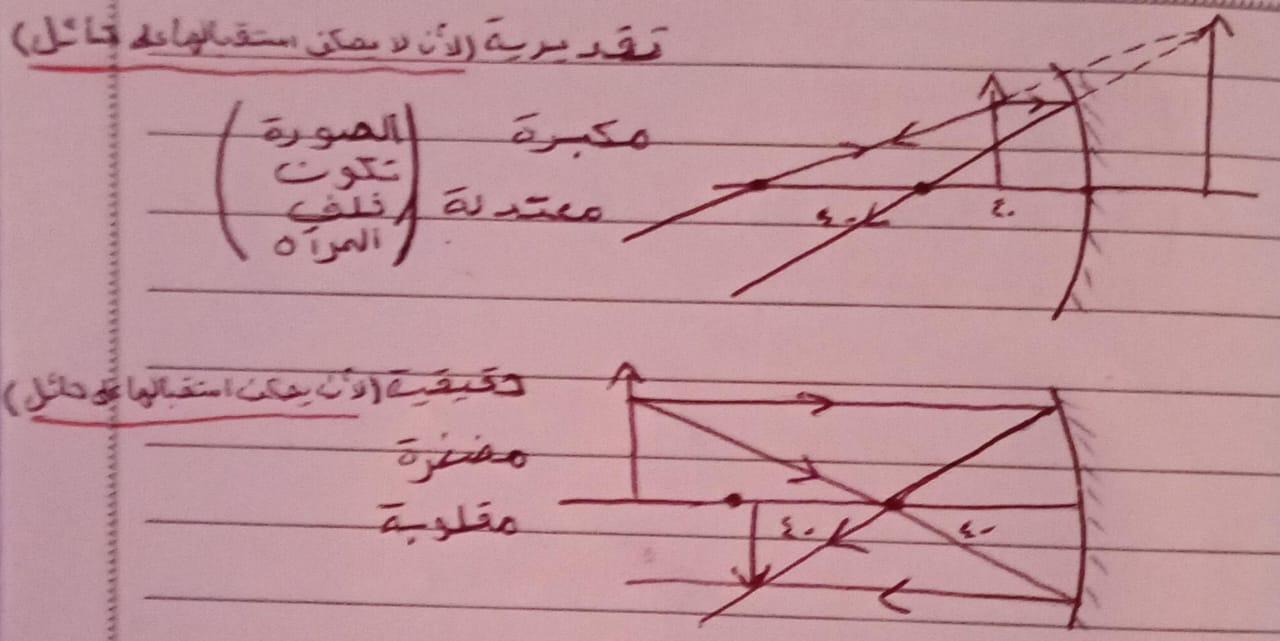 تقديرية (لأن لا يمكن استقبالها على حائل)
مكبرة
معتدلة
(الصورة
تكون
خلف
المرآه)
٤٠
٤٠
حقيقية (لأن يمكن استقبالها على حائل)
مصغرة
مقلوبة
٤٠
٤٠